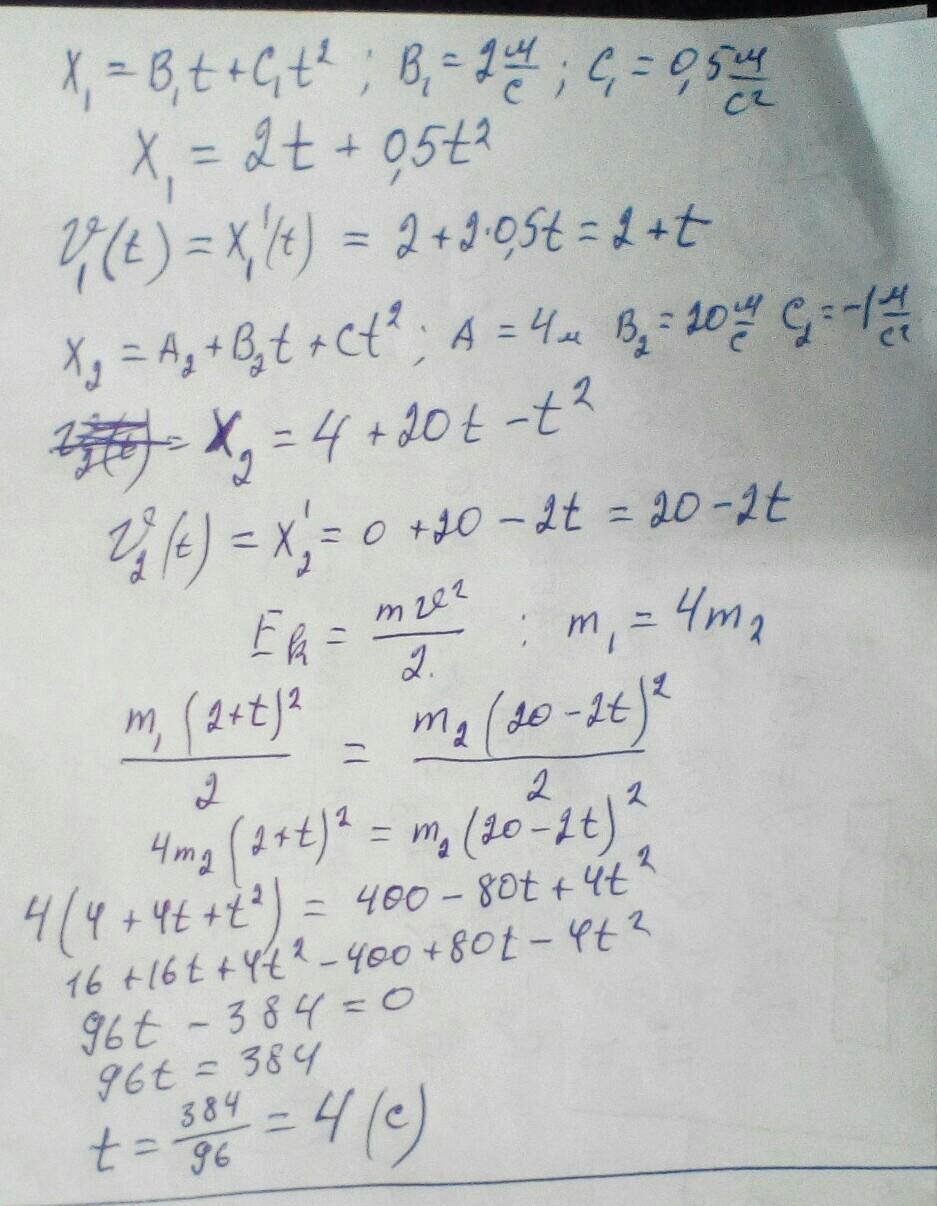 x₁ = B₁t + C₁t² ; B₁ = 2 м/с ; C₁ = 0,5 м/с²
x₁ = 2t + 0,5t²
v₁(t) = x₁'(t) = 2 + 2·0,5t = 2 + t
x₂ = A₂ + B₂t + Ct² ; A = 4м B₂ = 20 м/с C₂ = -1 м/с²
= x₂ = 4 + 20t - t²
v₂(t) = x₂' = 0 + 20 - 2t = 20 - 2t
Eк = mv²/2. ; m₁ = 4m₂
m₁(2+t)²/2 = m₂(20-2t)²/2
4m₂(2+t)² = m₂(20-2t)²
4(4 + 4t + t²) = 400 - 80t + 4t²
16 + 16t + 4t² - 400 + 80t - 4t²
96t - 384 = 0
96t = 384
t = 384/96 = 4 (с)